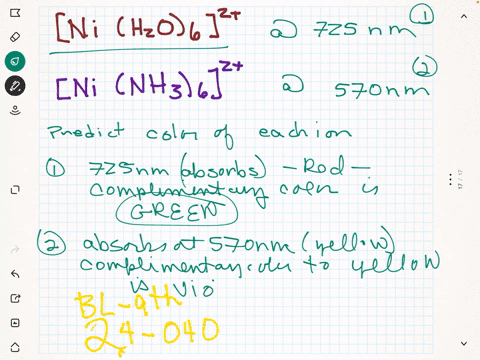 [Ni (H2O)6]2+ a) 725 nm (1)
[Ni (NH3)6]2+ a) 570nm (2)
Predict color of each ion
(1) 725nm (absorbs) - Red -
complimentary color is
GREEN
(2) absorbs at 570nm (yellow)
complimentary color to yellow
is vio
BL-9th
24-040
17 / 17